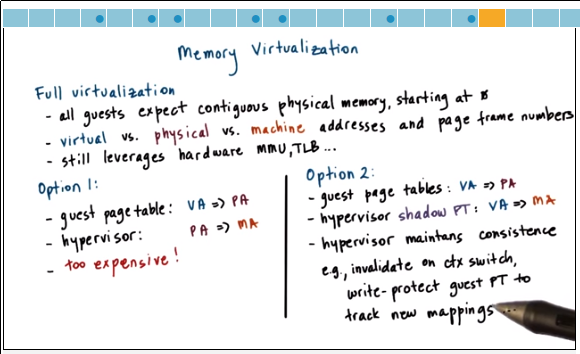 Memory Virtualization
Full virtualization
- all guests expect contiguous physical memory, starting at 0
- virtual vs. physical vs. machine addresses and page frame numbers
- still leverages hardware MMU, TLB ...
Option 1:
- guest page table: VA => PA
- hypervisor: PA => MA
- too expensive!
Option 2:
- guest page tables: VA => PA
- hypervisor shadow PT: VA => MA
- hypervisor maintans consistence
e.g., invalidate on ctx switch,
write-protect guest PT to
track new mappings ...